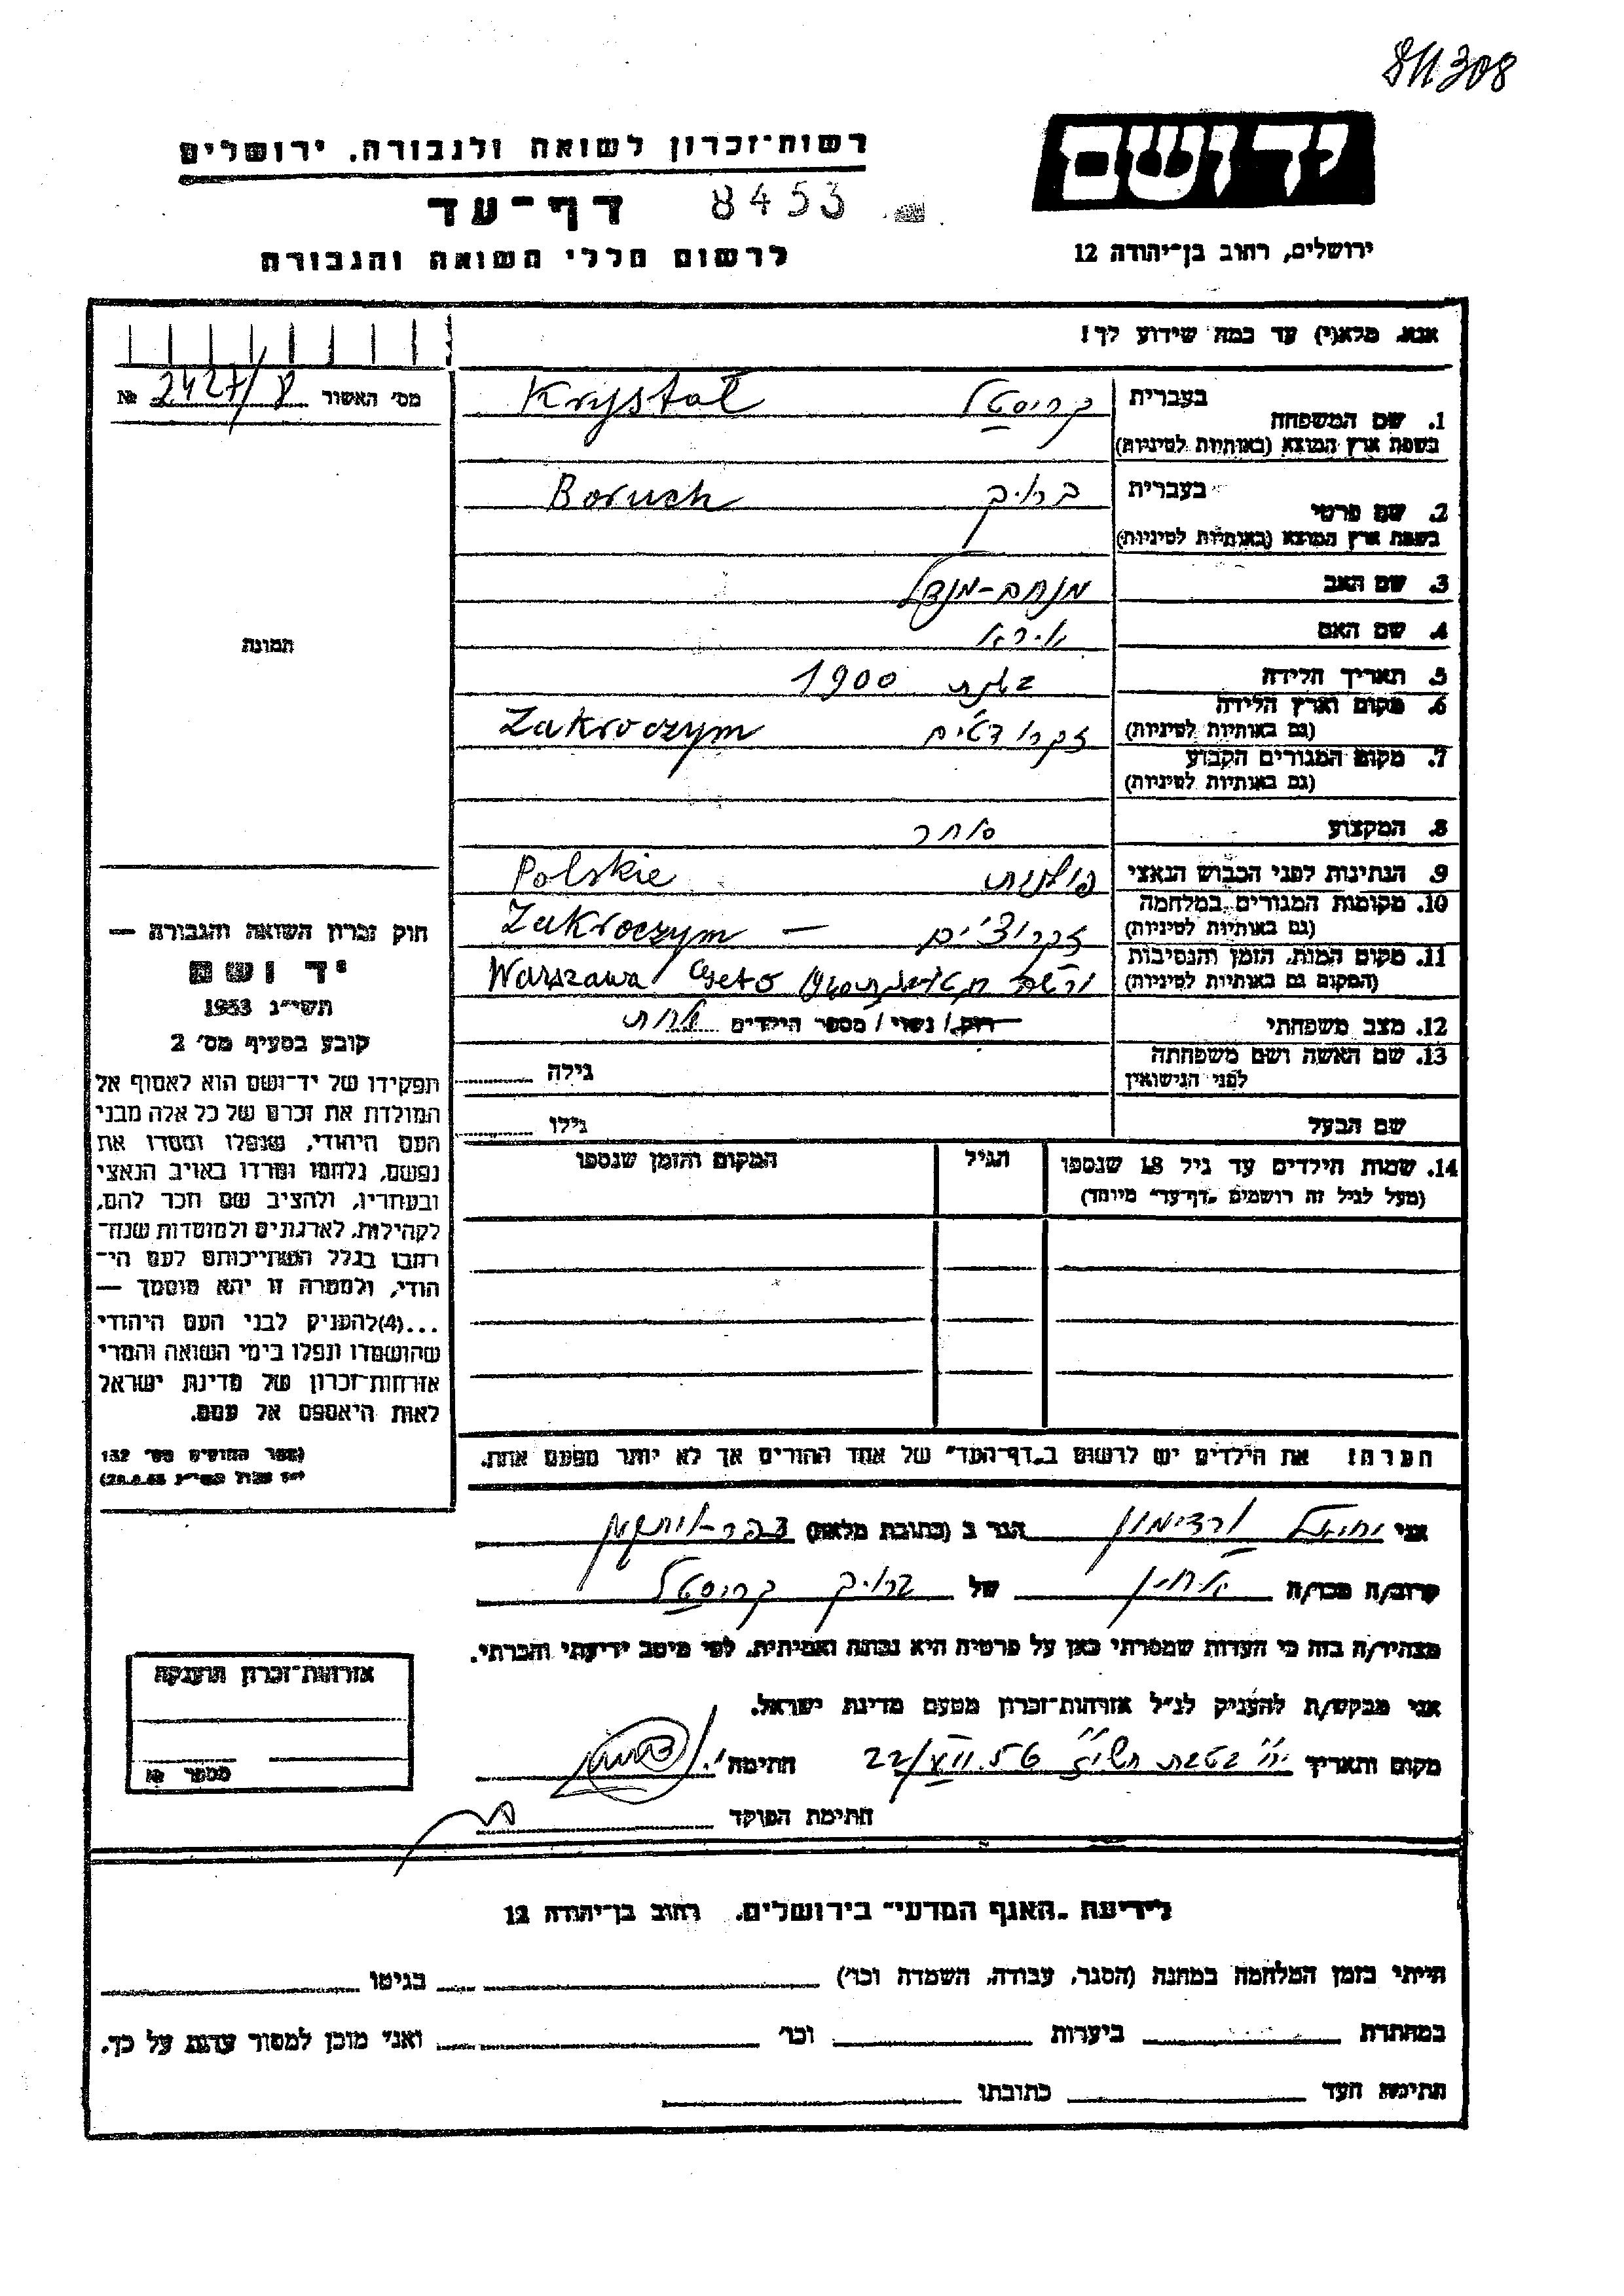 811308
יד ושם
רשות־זכרון לשואה ולגבורה, ירושלים
דף־עד 8453
ירושלים, רחוב בן־יהודה 12
לרשום חללי השואה והגבורה
אנא, מלא(י) עד כמה שידוע לך!
מס׳ האשור 2427/ №
1. שם המשפחה בעברית קריסטל Krystal
בשפת ארץ המוצא (באותיות לטיניות)
2. שם פרטי בעברית ברוך Boruch
בשפת ארץ המוצא (באותיות לטיניות)
3. שם האב מנחם-מנדל
4. שם האם
5. תאריך הלידה בשנת 1900
6. מקום וארץ הלידה
(גם באותיות לטיניות) Zakroczym
7. מקום המגורים הקבוע
(גם באותיות לטיניות)
8. המקצוע סוחר
9. הנתינות לפני הכבוש הנאצי פולנית Polskie
10. מקומות המגורים במלחמה
(גם באותיות לטיניות) זקרוצ׳ים — Zakroczym
11. מקום המות, הזמן והנסיבות
(המקום גם באותיות לטיניות) ורשה Warszawa Geto
12. מצב משפחתי רווק / נשוי / מספר הילדים
13. שם האשה ושם משפחתה
לפני הנישואין גילה
שם הבעל גילו
14. שמות הילדים עד גיל 18 שנספו הגיל המקום והזמן שנספו
(מעל לגיל זה רושמים „דף־עד״ מיוחד)
הערה: את הילדים יש לרשום ב„דף־העד״ של אחד ההורים אך לא יותר מפעם אחת.
תמונה
חוק זכרון השואה והגבורה —
יד ושם
תשי״ג 1953
קובע בסעיף מס׳ 2
תפקידו של יד־ושם הוא לאסוף אל
המולדת את זכרם של כל אלה מבני
העם היהודי, שנפלו ומסרו את
נפשם, נלחמו ומרדו באויב הנאצי
ובעוזריו, ולהציב שם וזכר להם,
לקהילות, לארגונים ולמוסדות שנח־
רבו בגלל השתייכותם לעם הי־
הודי, ולמטרה זו יהא מוסמך —
...(4) להעניק לבני העם היהודי
שהושמדו ונפלו בימי השואה והמרי
אזרחות־זכרון של מדינת ישראל
לאות היאספם אל עמם.
(ספר החוקים מס׳ 132
אני ורדימון הגר ב (כתובת מלאה)
קרוב/ה מכר/ה של ברוך קריסטל
מצהיר/ה בזה כי העדות שמסרתי כאן על פרטיה היא נכונה ואמיתית, לפי מיטב ידיעתי והכרתי.
אני מבקש/ת להעניק לנ״ל אזרחות־זכרון מטעם מדינת ישראל.
מקום ותאריך י״ח בטבת תשי״ז 22/XII.56 חתימה
חתימת הפוקד
אזרחות־זכרון הוענקה
מספר №
לידיעת „האגף המדעי״ בירושלים, רחוב בן־יהודה 12
הייתי בזמן המלחמה במחנה (הסגר, עבודה, השמדה וכו׳) בגיטו
במחתרת ביערות וכו׳ ואני מוכן למסור עדות על כך.
חתימת העד כתובתו